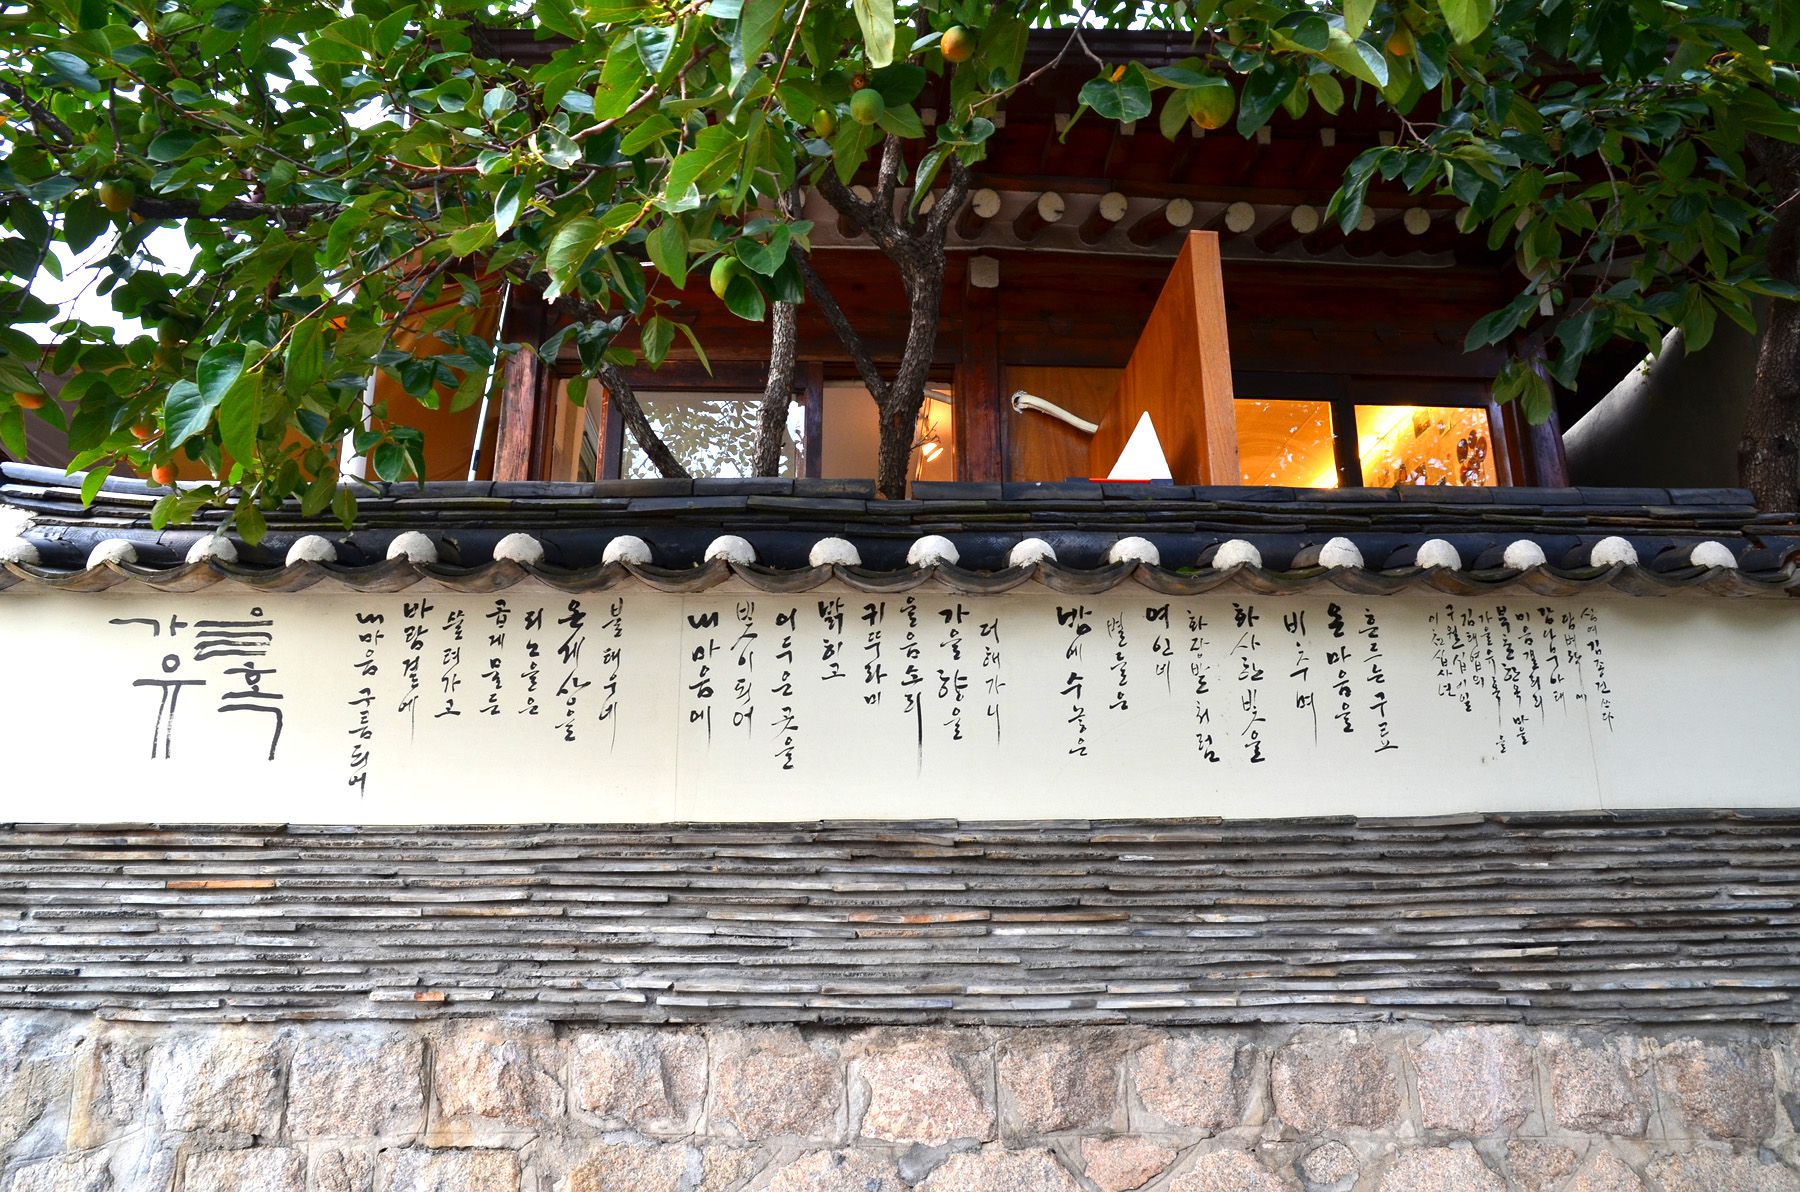 가을
유혹
내마음 구름되어
바람결에
실려가고
곱게물든
노을은
온세상을
불태우네
내마음에
빛이되어
어두운 곳을
밝히고
귀뚜라미
울음소리
가을향을
더해가니
밤에 수놓은
별들은
여인네
화장발처럼
화사한 빛을
비추며
온마음을
흔드는구료
이천십사년
구월 십이일
김태엽의
가을유혹을
북촌한옥마을
갤러리
감나무아래
담벼락에
김종건 쓰다